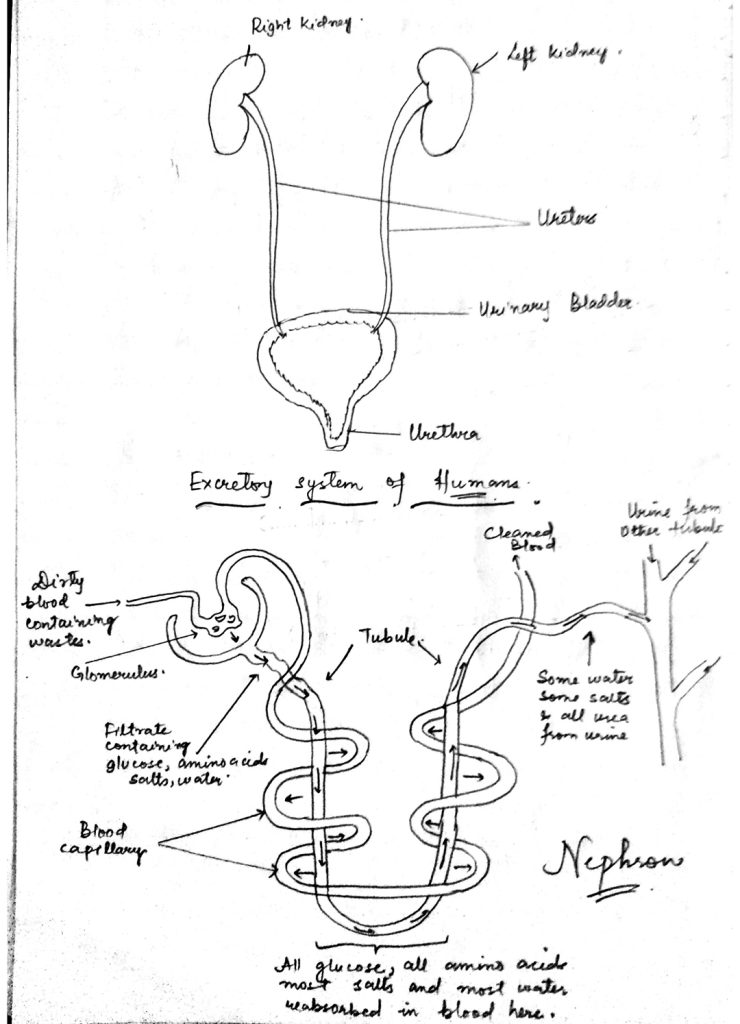 Right kidney.
Left kidney.
Ureters
Urinary Bladder
Urethra
Excretory system of Humans.
Dirty
blood
containing
wastes.
Glomerulus.
Filtrate
containing
glucose, amino acids
salts, water.
Tubule.
Cleaned
Blood
Urine from
Other tubule
Some water
some salts
& all urea
from urine
Blood
capillary
Nephron
All glucose, all amino acids
most salts and most water
reabsorbed in blood here.